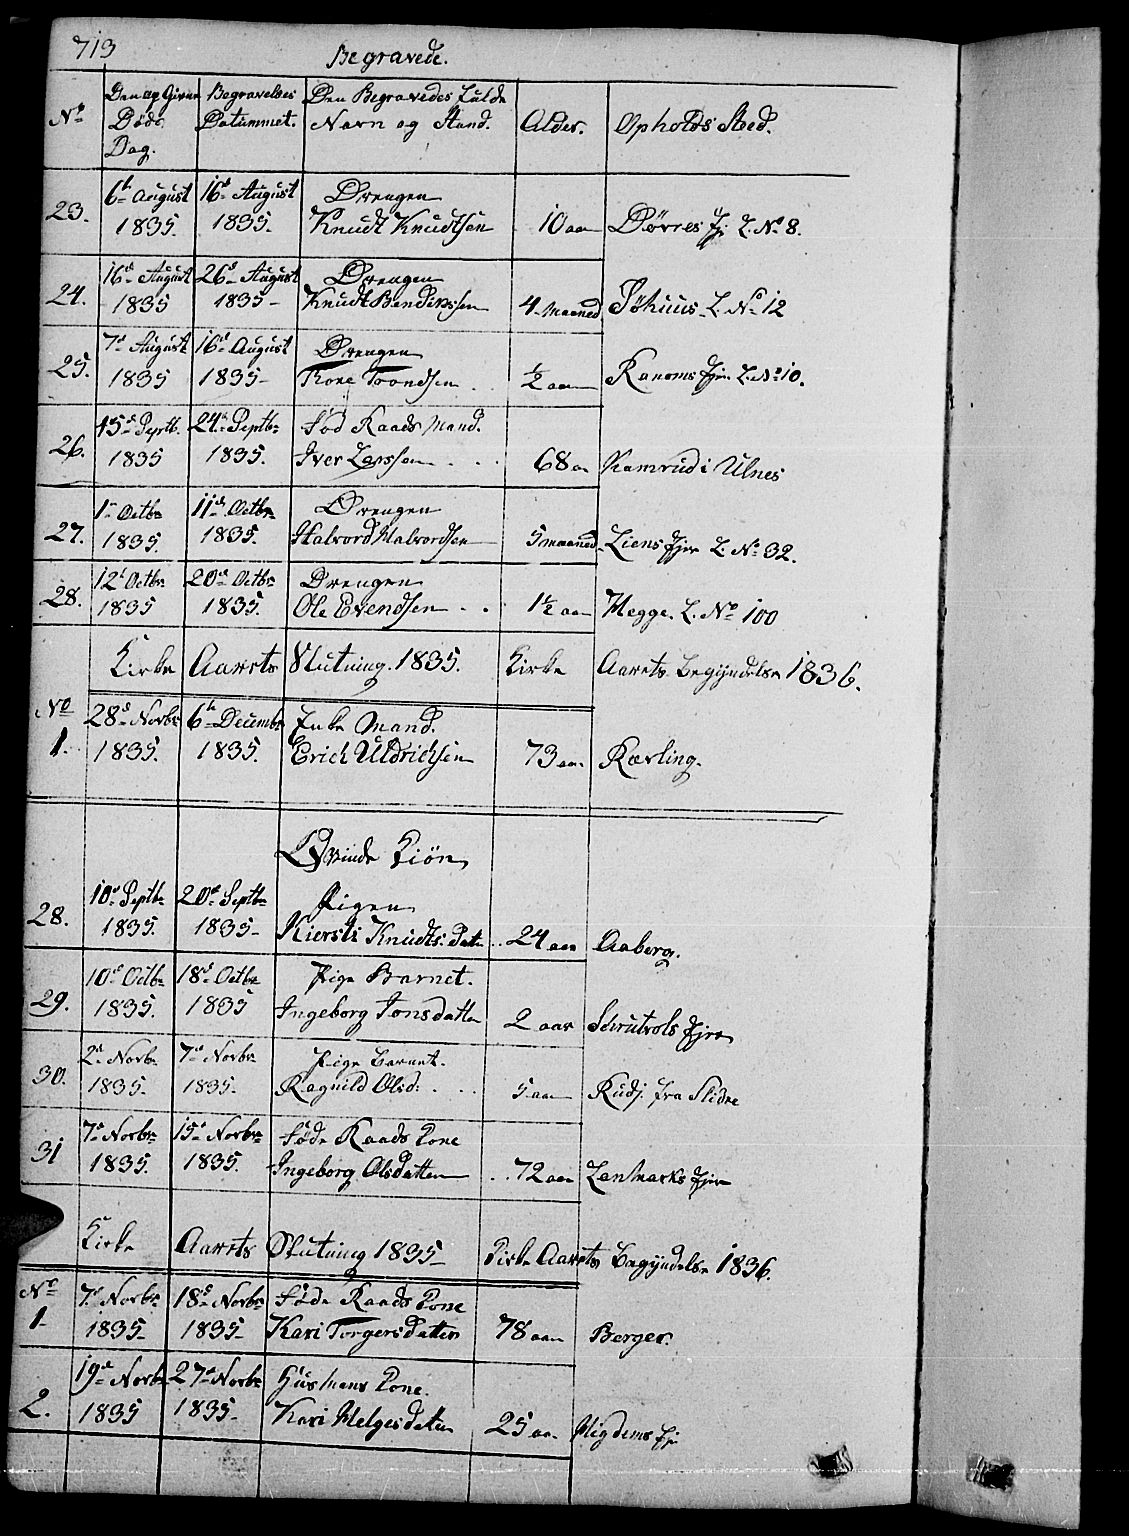 713
Begravede.
No
Den opgivne Døds Dag.
Begravelses Datummet.
Den Begravedes fulde Navn og Stand.
Alder.
Opholds Sted.
23. 6te August 1835. 16de August 1835. Drengen Knudt Knudtsen 10 aar Dørres Ejr L. No 8.
24. 16de August 1835 26de August 1835 Drengen Knudt Bendixsen 4 Maaned L. No 12
25. 7de August 1835 16de August 1835 Drengen Tore Trondsen ½ aar Ranoms Ejr L. No 10.
26. 15de Septb. 1835 24de Septbr 1835. Føde Raads Mand. Iver Larssen 68 aar Ramrud i Ulnes
27. 1te Octbr 1835. 11te Octbr 1835. Drengen Halvord Halvordsen 5 maaned Liens Ejer L. No 32.
28. 12te Octbr 1835 20de Octbr 1835. Drengen Ole Evendsen 1½ aar Hegge. L. No 100
Kirke Aarets Slutning. 1835. Kirke Aarets Begyndelse 1836.
No 1. 28de Novbr 1835. 6te Decembr 1835. Enke Mand. Erich Uldrichsen 73 aar Kærling.
Qvinde Kiøn
28. 10de Septbr 1835. 20de Septbr 1835 Pigen Kiersti Knudts: Datter 24 aar Aaberg.
29. 10de Octbr 1835. 18de Octbr 1835 Pige Barnet. Ingeborg Jonsdatter 2 aar Skrutvols Ejer
30. 2de Novbr 1835. 7de Novbr 1835. Pige Barnet. Ragnild Olsd: 5 aar Rudj. fra Slidre
31 7de Novbr 1835. 15de Novbr 1835. Føde Raads Kone Ingeborg Olsdatter 72 aar Ejer
Kirke Aarets Slutning 1835 Kirke Aarets Begyndelse 1836.
No 1 7de Novbr 1835 18de Novbr 1835 Føde Raads Kone Kari Torgersdatter 78 aar Berger.
2. 19de Novbr 1835 27de Novbr 1835 Husmans Kone. Kari Helgesdatter 25 aar Ejr